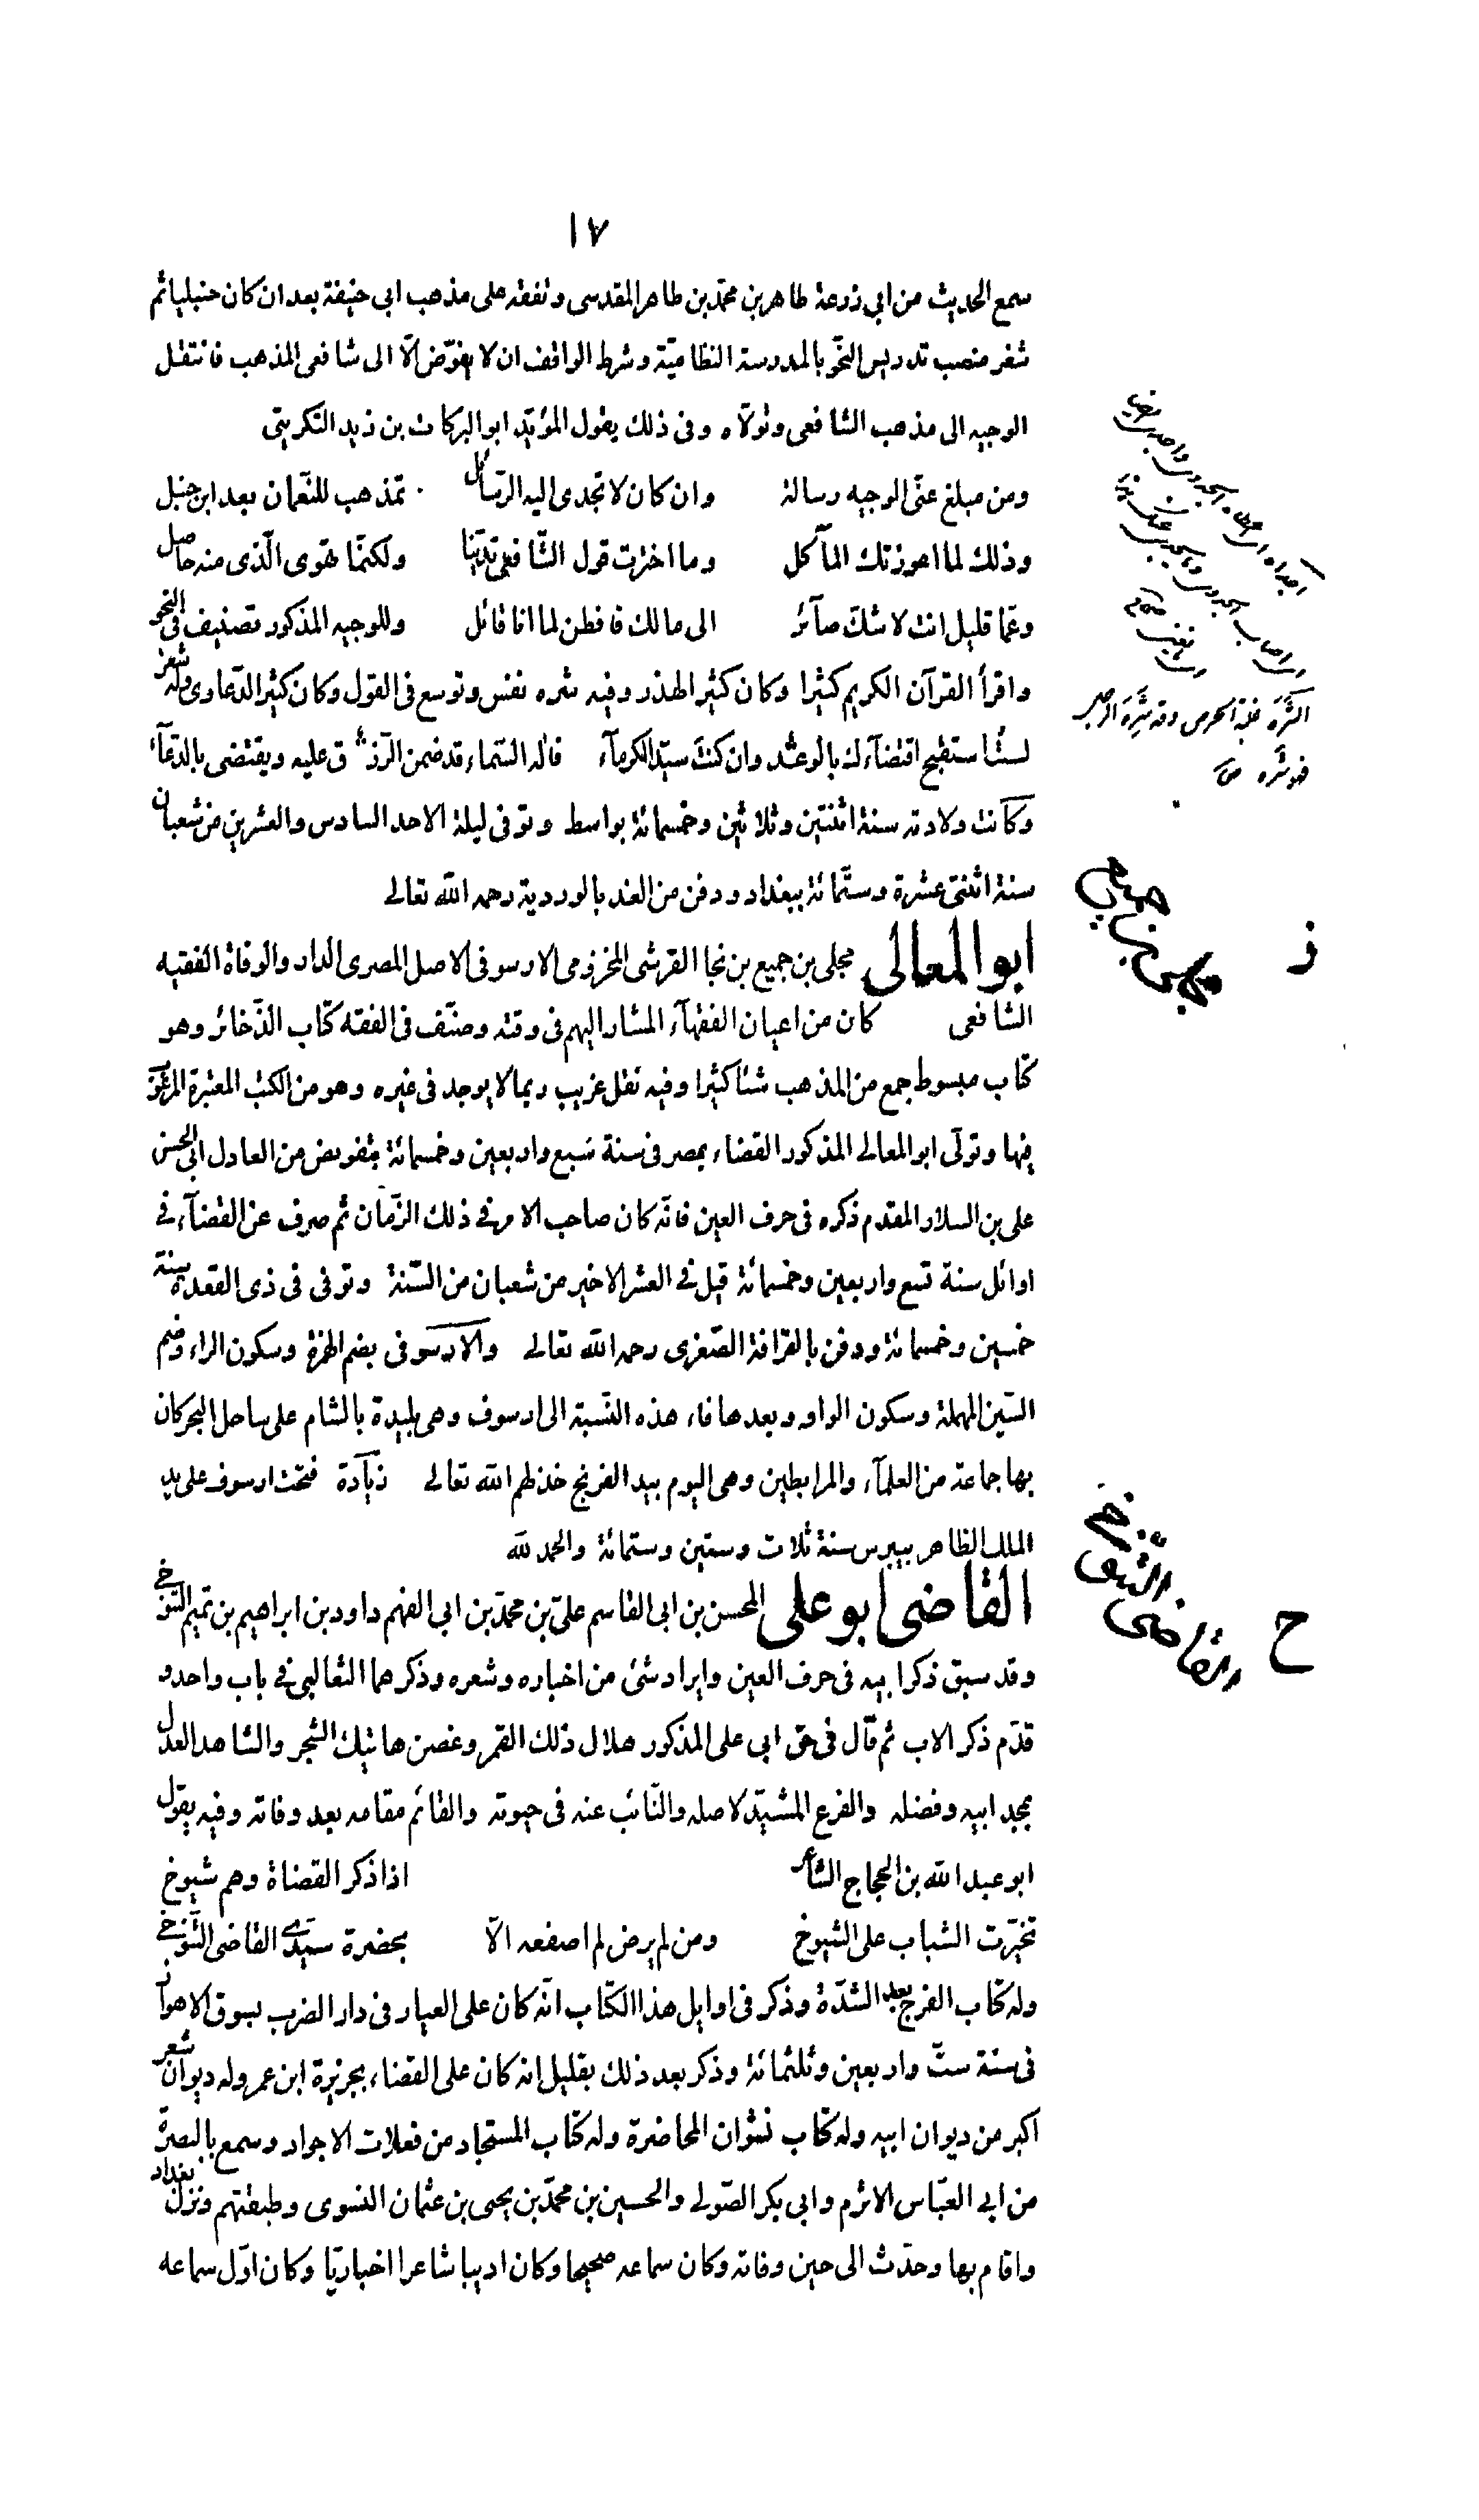 ١٧
سمع الحديث من ابي زرعة طاهر بن محمّد بن طاهر المقدسى وتفقه على مذهب ابى حنيفة بعد ان كان حنبليا ثم
شغر منصب تدريس النحو بالمدرسة النظاميّة وشرط الواقف ان لا يفوّض الّا الى شافعى المذهب فانتقل
الوجيه الى مذهب الشافعى وتولّاه وفى ذلك يقول المؤيّد ابو البركات بن زيد التكريتى
ومن مبلغ عنّى الوجيه رسالة وان كان لا تجدى اليه الرّسائل تمذهب للنّعمان بعد ابن حنبل
وذلك لما اعوزتك المآكل وما اخترت قول الشّافعى تديّنا ولكنّما تهوى الّذى منه حاصل
وعمّا قليل انت لا شكّ صآئر الى مالك فافطن لما انا قائل وللوجيه المذكور تصنيف فى النحو
واقرأ القرآن الكريم كثيرا وكان كثير الهذر وفيه شره نفس وتوسع فى القول وكان كثير الدّعاوى وله شعر
لست استقبح اقتضآءك بالوعد وان كنت سيّد الكرمآء فاله السّماء قد ضمن الرّزق عليه ويقتضى بالدّعآء
وكانت ولادته سنة اثنتين وثلاثين وخمسمائة بواسط وتوفى ليلة الاحد السادس والعشرين من شعبان
سنة اثنتى عشرة وستّمائة ببغداد ودفن من الغد بالوردية رحمه الله تعالى
ابو المعالى مجلى بن جميع بن نجا القرشى المخزومى الارسوفى الاصل المصرى الدار والوفاة الفقيه
الشافعى كان من اعيان الفقهآء المشار اليهم فى وقته وصنّف فى الفقه كتاب الذّخائر وهو
كتاب مبسوط جمع من المذهب شئا كثيرا وفيه نقل غريب ربما لا يوجد فى غيره وهو من الكتب المعتبرة المرغوب
فيها وتولّى ابو المعالى المذكور القضاء بمصر فى سنة سبع واربعين وخمسمائة بتفويض من العادل ابى الحسن
على بن السلار المقدم ذكره فى حرف العين فانّه كان صاحب الامر فى ذلك الزّمان ثم صرف عن القضآء فى
اوائل سنة تسع واربعين وخمسمائة قيل فى العشر الاخير من شعبان من السّنة وتوفى فى ذى القعدة سنة
خمسين وخمسمائة ودفن بالقرافة الصّغرى رحمه الله تعالى والارسوفى بضم الهمزة وسكون الراء وضم
السّين المهملة وسكون الواو وبعدها فاء هذه النّسبة الى ارسوف وهى بليدة بالشام على ساحل البحر كان
بها جماعة من العلمآء والمرابطين وهى اليوم بيد الفرنج خذلهم الله تعالى زيادة فتحت ارسوف على يد
الملك الظاهر بيبرس سنة ثلاث وستين وستمائة والحمد لله
القاضى ابو على المحسن بن ابى القاسم علىّ بن محمّد بن ابى الفهم داود بن ابراهيم بن تميم التنوخى
وقد سبق ذكر ابيه فى حرف العين وايراد شئ من اخباره وشعره وذكرهما الثعالبى فى باب واحد و
قدّم ذكر الاب ثم قال فى حق ابى على المذكور هلال ذلك القمر وغصن هاتيك الشجر والشاهد العدل
بمجد ابيه وفضله والفرع المشيّد لاصله والنّائب عنه فى حيوته والقائم مقامه بعد وفاته وفيه يقول
ابو عبد الله بن الحجاج الشاعر اذا ذكر القضاة وهم شيوخ
تخيّرت الشباب على الشيوخ ومن لم يرض لم اصفعه الّا بحضرة سيّدى القاضى التّنوخى
وله كتاب الفرج بعد الشدّة وذكر فى اوايل هذا الكتاب انّه كان على العيار فى دار الضرب بسوق الاهواز
فى سنة ستّ واربعين وثلثمائة وذكر بعد ذلك بقليل انه كان على القضاء بجزيرة ابن عمر وله ديوان شعر
اكبر من ديوان ابيه وله كتاب نشوان المحاضرة وله كتاب المستجاد من فعلات الاجواد وسمع بالبصرة
من ابى العبّاس الاثرم وابى بكر الصّولى والحسين بن محمّد بن يحيى بن عثمان النسوى وطبقتهم ونزل بغداد
واقام بها وحدّث الى حين وفاته وكان سماعه صحيحا وكان اديبا شاعرا اخباريّا وكان اوّل سماعه
الشره غلبة الحرص وقد شره الرجل
فهو شره
ز
مجلى بن جميع
ح
القاضى التنوخى